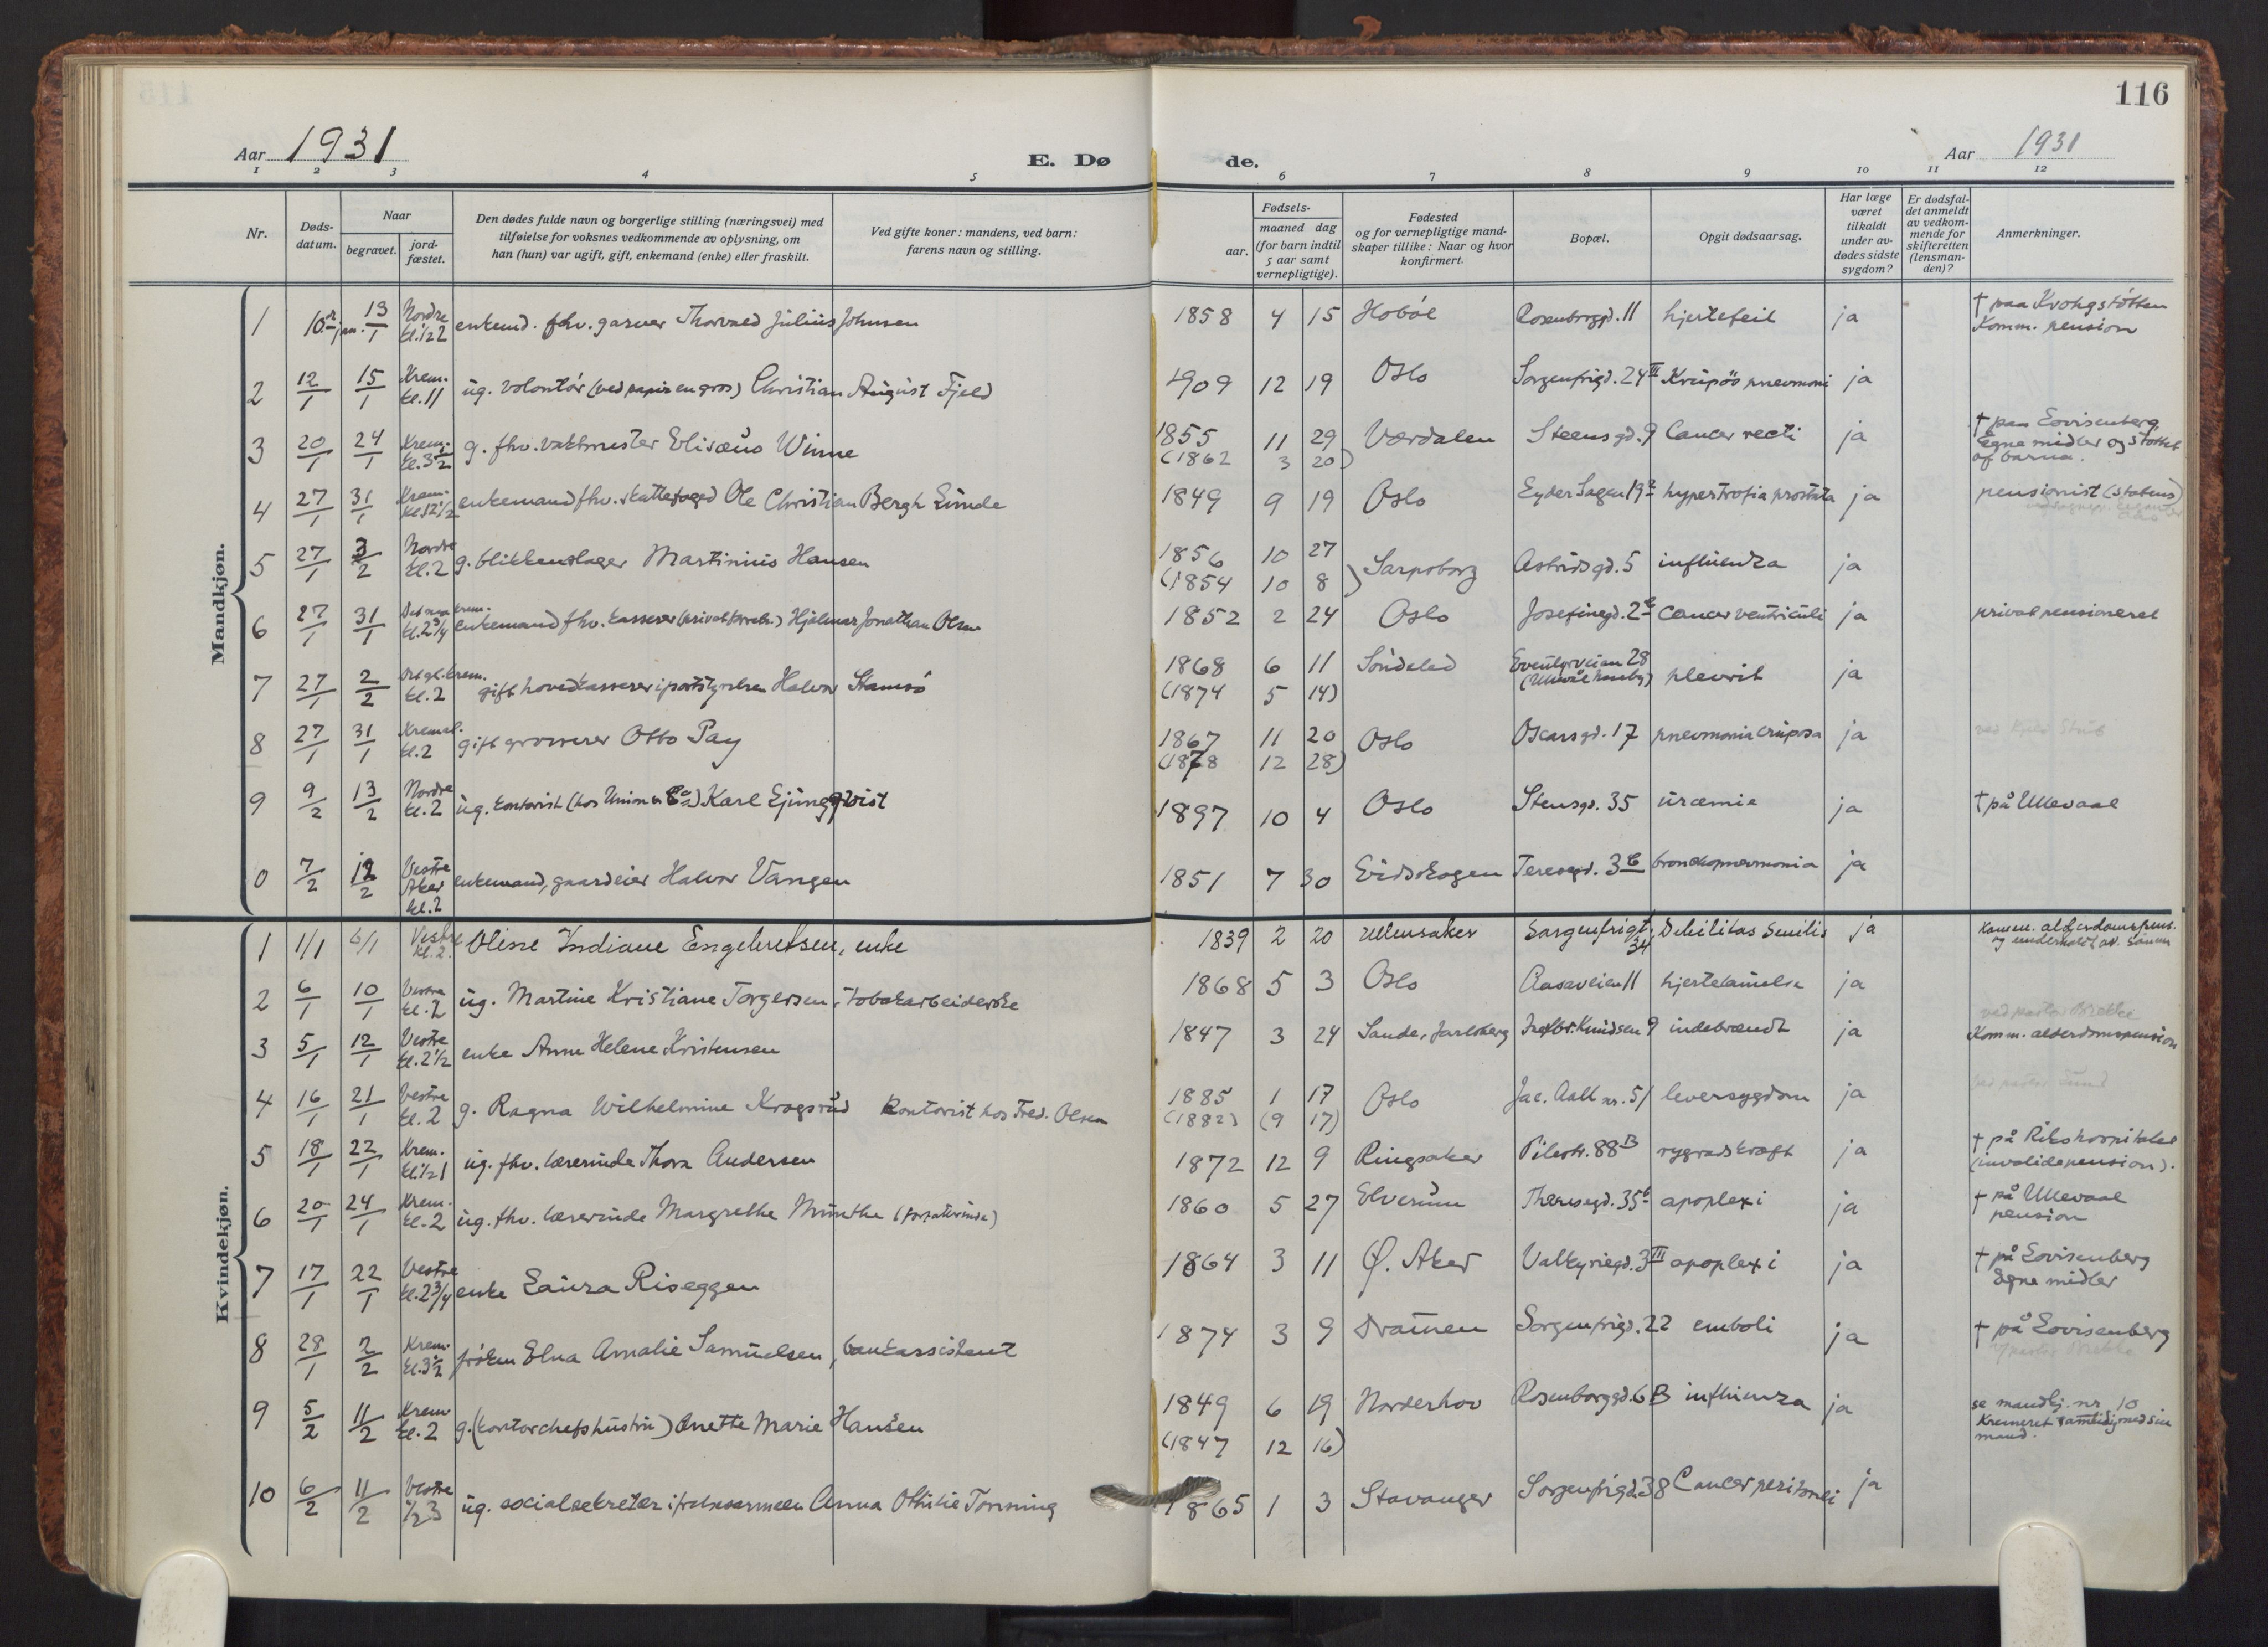 116
Aar 1931
E. Dø
de.
Aar 1931
1 2 3 4 5 6 7 8 9 10 11 12
Nr.
Døds-
datum.
Naar
begravet.
jord-
fæstet.
Den dødes fulde navn og borgerlige stilling (næringsvei) med
tilføielse for voksnes vedkommende av oplysning, om
han (hun) var ugift, gift, enkemand (enke) eller fraskilt.
Ved gifte koner: mandens, ved barn:
farens navn og stilling.
Fødsels-
aar.
maaned dag
(for barn indtil
5 aar samt
vernepligtige).
Fødested
og for vernepligtige mand-
skaper tillike: Naar og hvor
konfirmert.
Bopæl.
Opgit dødsaarsag.
Har læge
været
tilkaldt
under av-
dødes sidste
sygdom?
Er dødsfal-
det anmeldt
av vedkom-
mende for
skifteretten
(lensman-
den)?
Anmerkninger.
Mandkjøn.
1 10 jan. 13/1 Nordre kl. 1/2 2 enkemd. fhv. garver Thorvald Julius Johnsen 1858 4 15 Hobøl Rosenborggd. 11 hjertefeil ja † paa Krohgstøtten
Komm. pension
2 12/1 15/1 Krem. kl. 11 ug. volontør (ved papir en gros) Christian August Fjeld 1909 12 19 Oslo Sorgenfrigd. 24 II Krupøs pneumoni ja
3 20/1 24/1 Krem. kl. 3 1/2 g. fhv. vaktmester Elisæus Winne 1855 11 29 Værdalen Steensgd. 9 Cancer recti ja † paa Lovisenberg
(1862 3 20) Egne midler og støttet
af barna.
4 27/1 31/1 Krem. kl. 12 1/2 enkemand fhv. skattefoged Ole Christian Bergh Lunde 1849 9 19 Oslo Eyder Sagen 19 hypertrofia prostata ja pensionist (statens)
5 27/1 3/2 Nordre kl. 2 g. blikkenslager Martinius Hansen 1856 10 27 Sarpsborg Astridsgd. 5 influenza ja
(1854 10 8)
6 27/1 31/1 Det nye krem. kl. 2 3/4 enkemand fhv. kasserer Hjalmar Jonathan Olsen 1852 2 24 Oslo Josefinegd. 2 cancer ventriculi ja privat pensioneret
7 27/1 2/2 Det gl. krem. kl. 2 gift hovedkasserer i poststyrelsen Halvor Stamsø 1868 6 11 Søndeled Eventyrveien 28 plevrit ja
(1874 5 14) (Ullevål haveby)
8 27/1 31/1 Kremat. kl. 2 gift grosserer Otto Pay 1867 11 20 Oslo Oscarsgd. 17 pneumonia cruposa ja
(1878 12 28)
9 9/2 13/2 Nordre kl. 2 ug. kontorist (hos Union Co) Karl Ljungqvist 1897 10 4 Oslo Stensgd. 35 uræmie ja † på Ullevaal
0 7/2 12/2 Vestre Aker kl. 2 enkemand, gaardeier Halvor Vangen 1851 7 30 Eidskogen Teresegd. 3 bronchopneumonia ja
Kvindekjøn.
1 1/1 6/1 Vestre kl. 2. Olisse Indiane Engebretsen, enke 1839 2 20 Ullensaker Sorgenfrigt. 34 Debilitas senilis ja Komm. alderdomspens.
og underholdt av sønnen
2 6/1 10/1 Vestre kl. 2 ug. Martine Kristiane Torgersen, tobakarbeiderske 1868 5 3 Oslo Aasaveien 11 hjertelamelse ja
3 5/1 12/1 Vestre kl. 2 1/2 enke Anne Helene Kristensen 1847 3 24 Sande, Jarlsberg Knudsen 9 indebrændt ja Komm. alderdomspension
4 16/1 21/1 Vestre kl. 2 g. Ragna Wilhelmine Krogsrud Kontorist hos Fred. Olsen 1885 1 17 Oslo Jac. Aall nr. 51 leversygdom ja
(1882) (9 17)
5 18/1 22/1 Krem. kl. 1/2 1 ug. fhv. lærerinde Thora Andersen 1872 12 9 Ringsaker Pilestr. 88 B rygradskræft ja † på Rikshospitalet
(invalidepension).
6 20/1 24/1 Krem. kl. 2 ug. fhv. lærerinde Margrethe Munthe (forfatterinde) 1860 5 27 Elverum Theresegd. 35 apoplexi ja † på Ullevaal
pension
7 17/1 22/1 Vestre kl. 2 3/4 enke Laura Riseggen 1864 3 11 Ø. Aker Valkyriegd. 3 III apoplexi ja † på Lovisenberg
Egne midler
8 28/1 2/2 Krem. kl. 3 1/2 frøken Elna Amalie Samuelsen, bankassistent 1874 3 9 Dramen Sorgenfrigd. 22 emboli ja † på Lovisenberg
9 5/2 11/2 Krem kl. 2 g. (kontorchefshustru) Anette Marie Hansen 1849 6 19 Norderhov Rosenborggd. 6 B influenza ja se mandkj. nr. 10
(1847 12 16) Kremeret samtidig med sin
mand.
10 6/2 11/2 Vestre 1/2 3 ug. socialsekretær i frelsesarmeen Anna Othilie Tonning 1865 1 3 Stavanger Sorgenfrigd. 38 Cancer peritonei ja